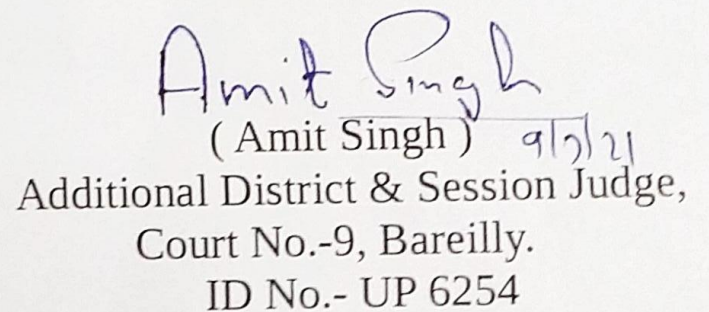 Amit Singh
( Amit Singh ) 9/7/21
Additional District & Session Judge,
Court No.-9, Bareilly.
ID No.- UP 6254